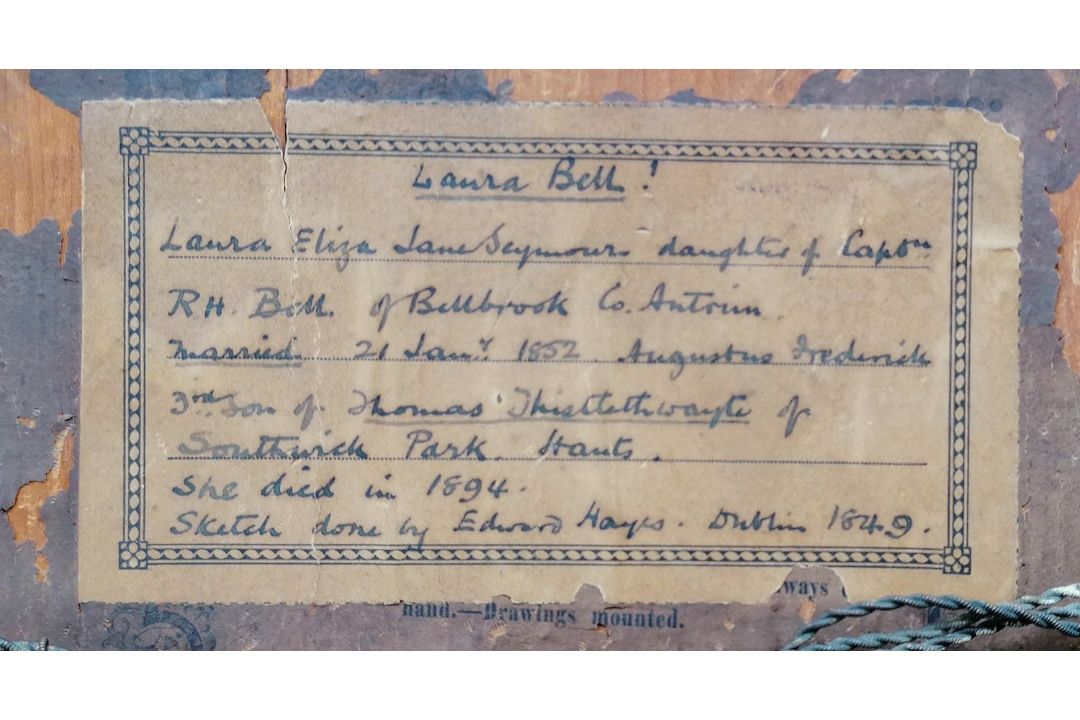 Laura Bell!
Laura Eliza Jane Seymour daughter of Captn
R H. Bell. of Bellbrook Co. Antrim.
Married 21 Jany 1852. Augustus Frederick
3rd Son of Thomas Thistlethwayte of
Southwick Park. Hants.
She died in 1894.
Sketch done by Edward Hayes. Dublin 1849.
ways
hand.—Drawings mounted.